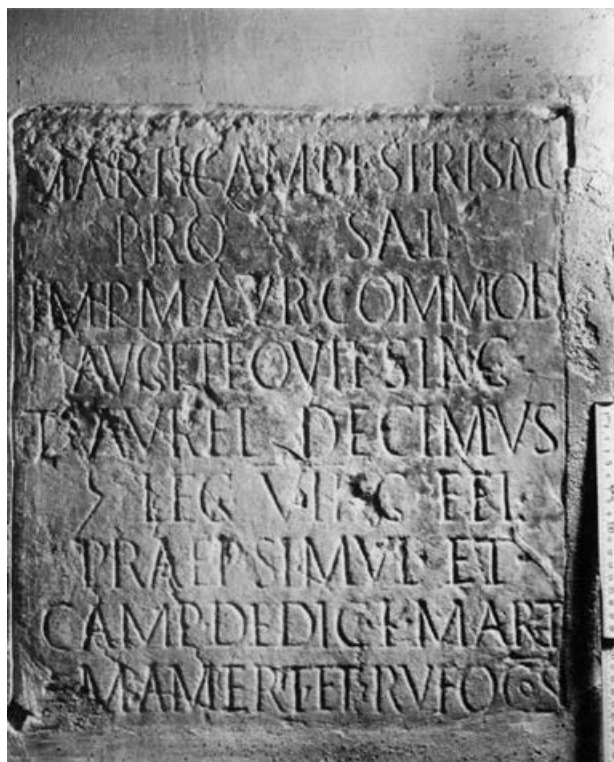 MARTI CAMPESTRI SAC
PRO SAL
IMP M AVR COMMOD
AVG ET EQVIT SING
T AVREL DECIMVS
LEG VII G FEL
PRAEP SIMVL ET
CAMP DEDIC K MART
MAMERT ET RVFO COS